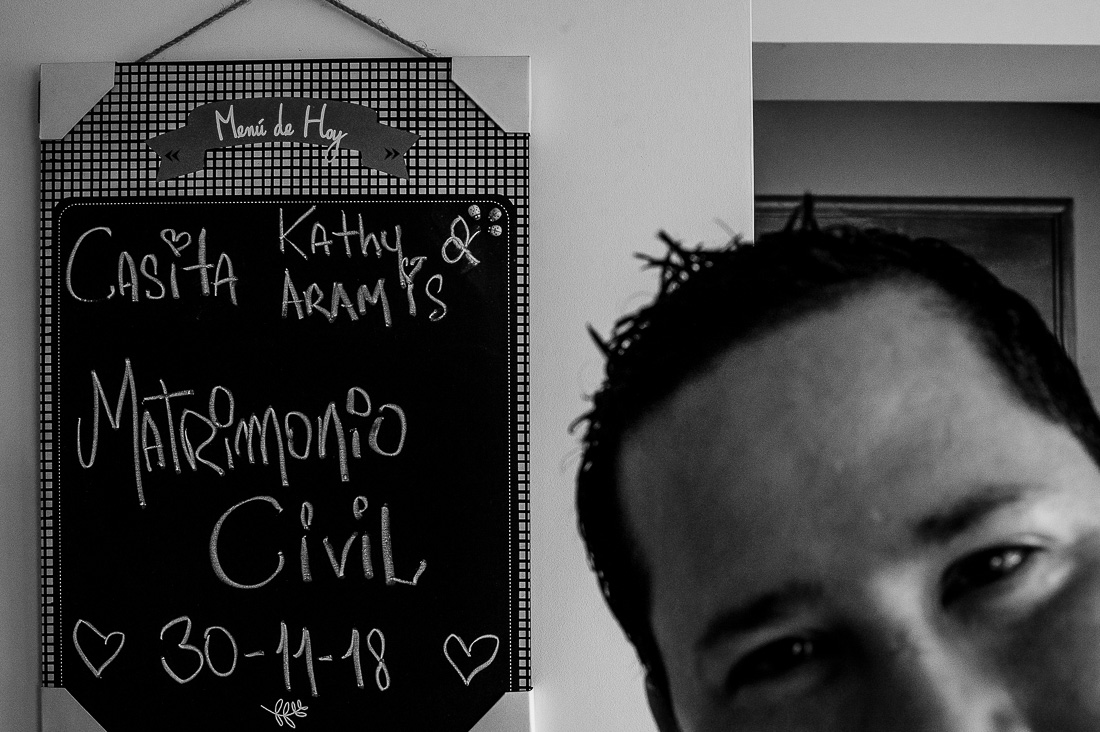 Menú de Hoy
Casita Kathy &
Aramis
Matrimonio
Civil
30-11-18